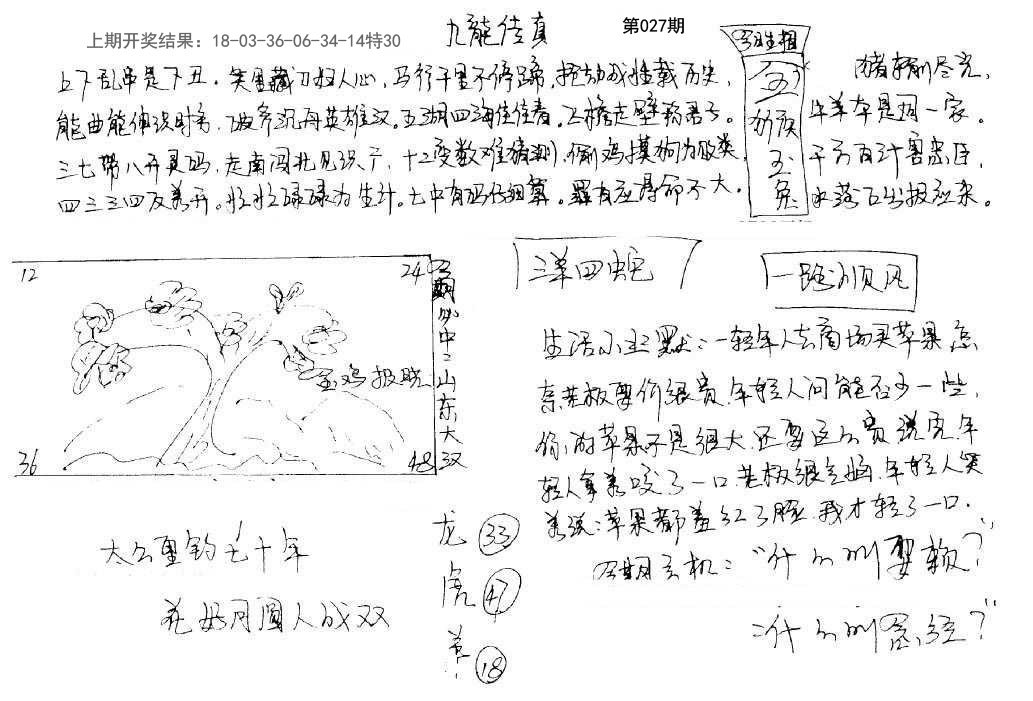 上期开奖结果：18-03-36-06-34-14特30
九龍传真
第027期
今期生相
上下乱串是下丑。笑里藏刀妇人心，马行千里不停蹄，
能曲能伸识时务，破斧沉舟英雄汉。五湖四海佳佳春。飞檐走壁称君子。
三七带八开灵码，走南闯北见识广，十二变数难猜测，偷鸡摸狗为败类，
四三三四反着开。忙忙碌碌为生计。七中有码仔细算。
玉
兔
牛羊本是同一家。
千方百计害忠臣，
水落石出报应来。
12
24
36
48
金鸡报晓
中：山东大汉
三羊四蛇
一路顺风
生活小幽默：一轻年人去商场买苹果，怎
奈老板要价很贵，年轻人问能否少一些，
你的苹果不是很大，还要这么贵，说完年
轻人拿着咬了一口，老板很气恼，年轻人笑
着说：苹果都羞红了脸，我才轻了一口．
今期玄机："什么叫耍赖？"
太公垂钓七十年
花好月圆人成双
龙 33
虎 47
羊 18